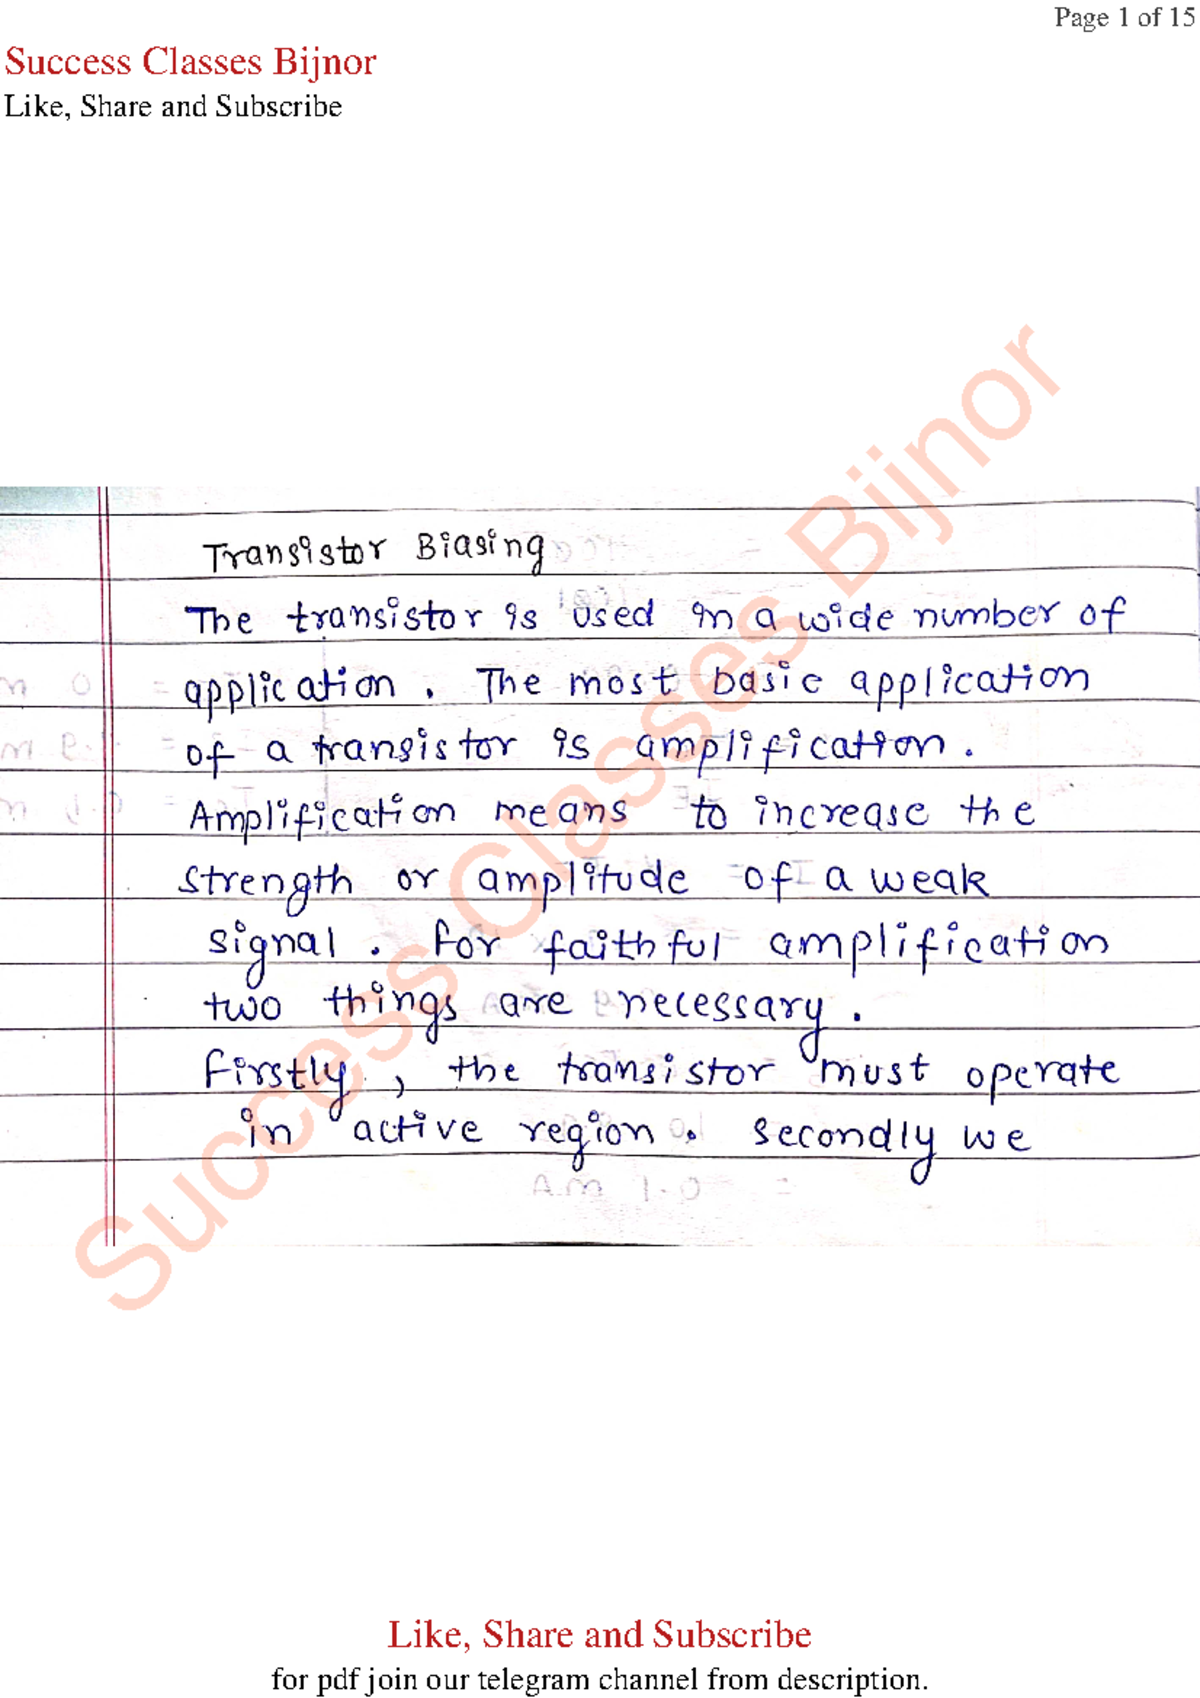 Page 1 of 15
Success Classes Bijnor
Like, Share and Subscribe
Transistor Biasing
The transistor is used in a wide number of
application. The most basic application
of a transistor is amplification.
Amplification means to increase the
strength or amplitude of a weak
signal. For faithful amplification
two things are necessary.
Firstly, the transistor must operate
in active region. Secondly we
Success Classes Bijnor
Like, Share and Subscribe
for pdf join our telegram channel from description.